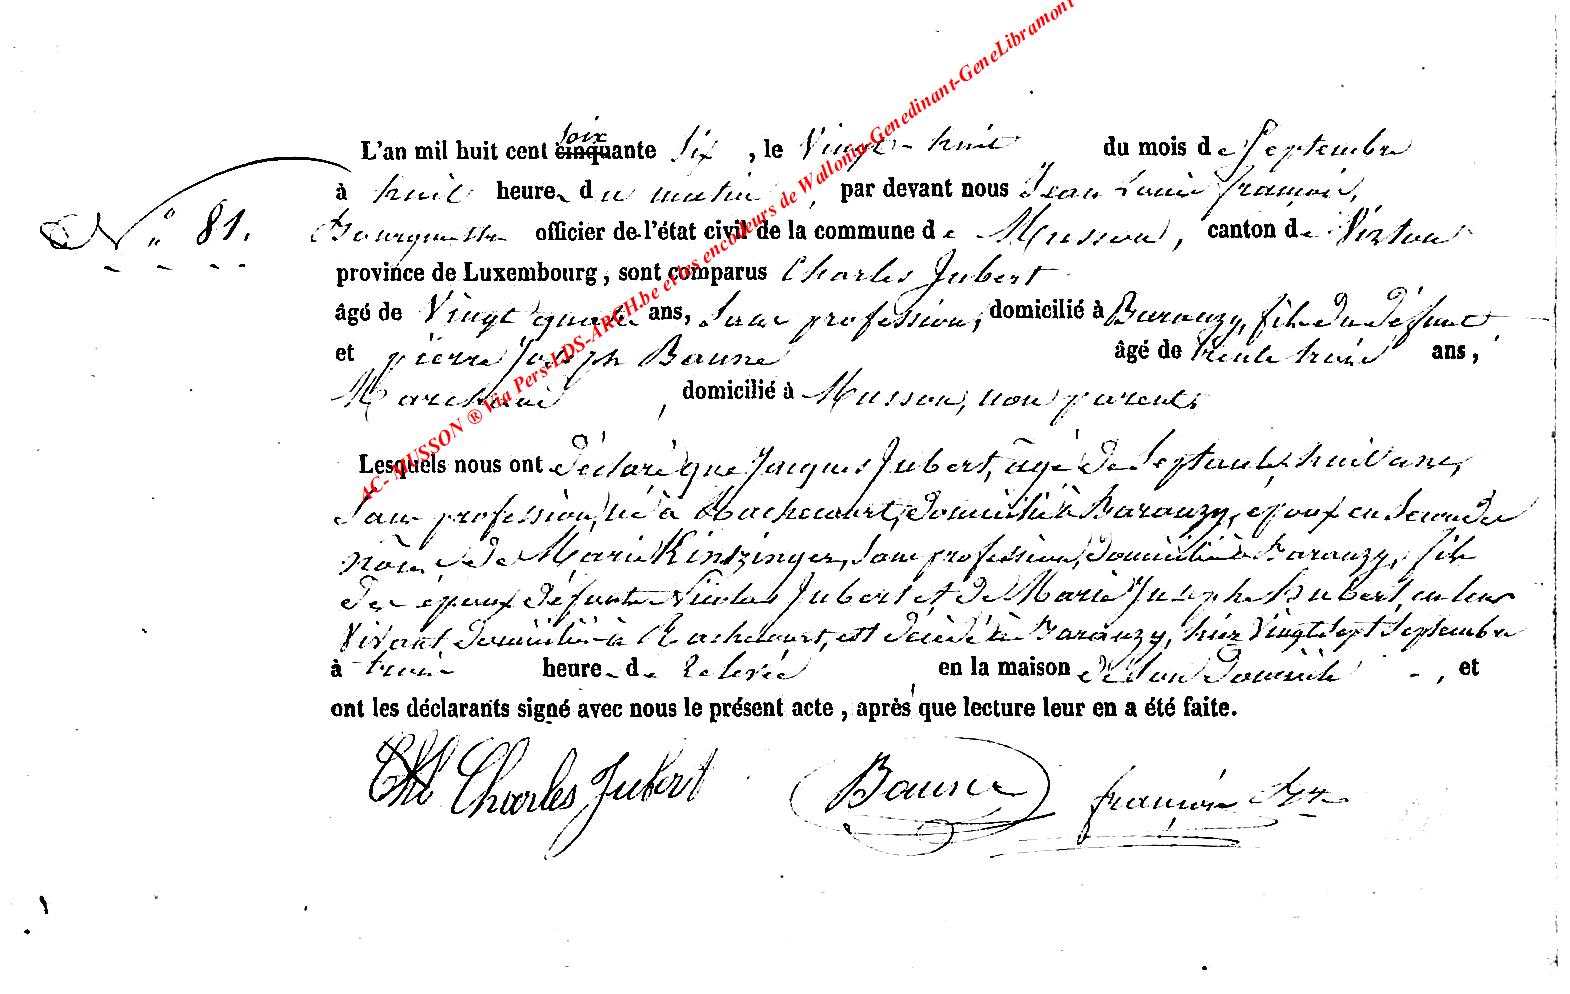 AC- MUSSON ® Via Pers-LDS-ARCH.be et les encodeurs de Wallonia-Genedinant-GeneLibramont
L'an mil huit cent soixante Six, le Vingt-huit du mois de Septembre
à huit heures du matin, par devant nous Jean Louis françois,
N° 81. Bourgmestre officier de l'état civil de la commune de Musson, canton de Virton
province de Luxembourg, sont comparus Charles Jubert
âgé de Vingt quatre ans, Sans profession, domicilié à Baranzy, fils du défunt
et pierre Joseph Baune âgé de trente trois ans,
Marchand, domicilié à Musson, non parents
Lesquels nous ont déclaré que Jacques Jubert, âgé de Septante huit ans,
Sans profession, né à Rachecourt, domicilié à Baranzy, époux en Secondes
nôces de Marie Kintzinger, Sans profession, domiciliée à Baranzy, fils
des époux défunts Nicolas Jubert et de Marie Joseph Hubert, en leur
Vivant domiciliés à Rachecourt, est décédé à Baranzy, hier Vingt Sept Septembre
à trois heures de Relevée en la maison de Son Domicile, et
ont les déclarants signé avec nous le présent acte, après que lecture leur en a été faite.
Charles Jubert Baune françois